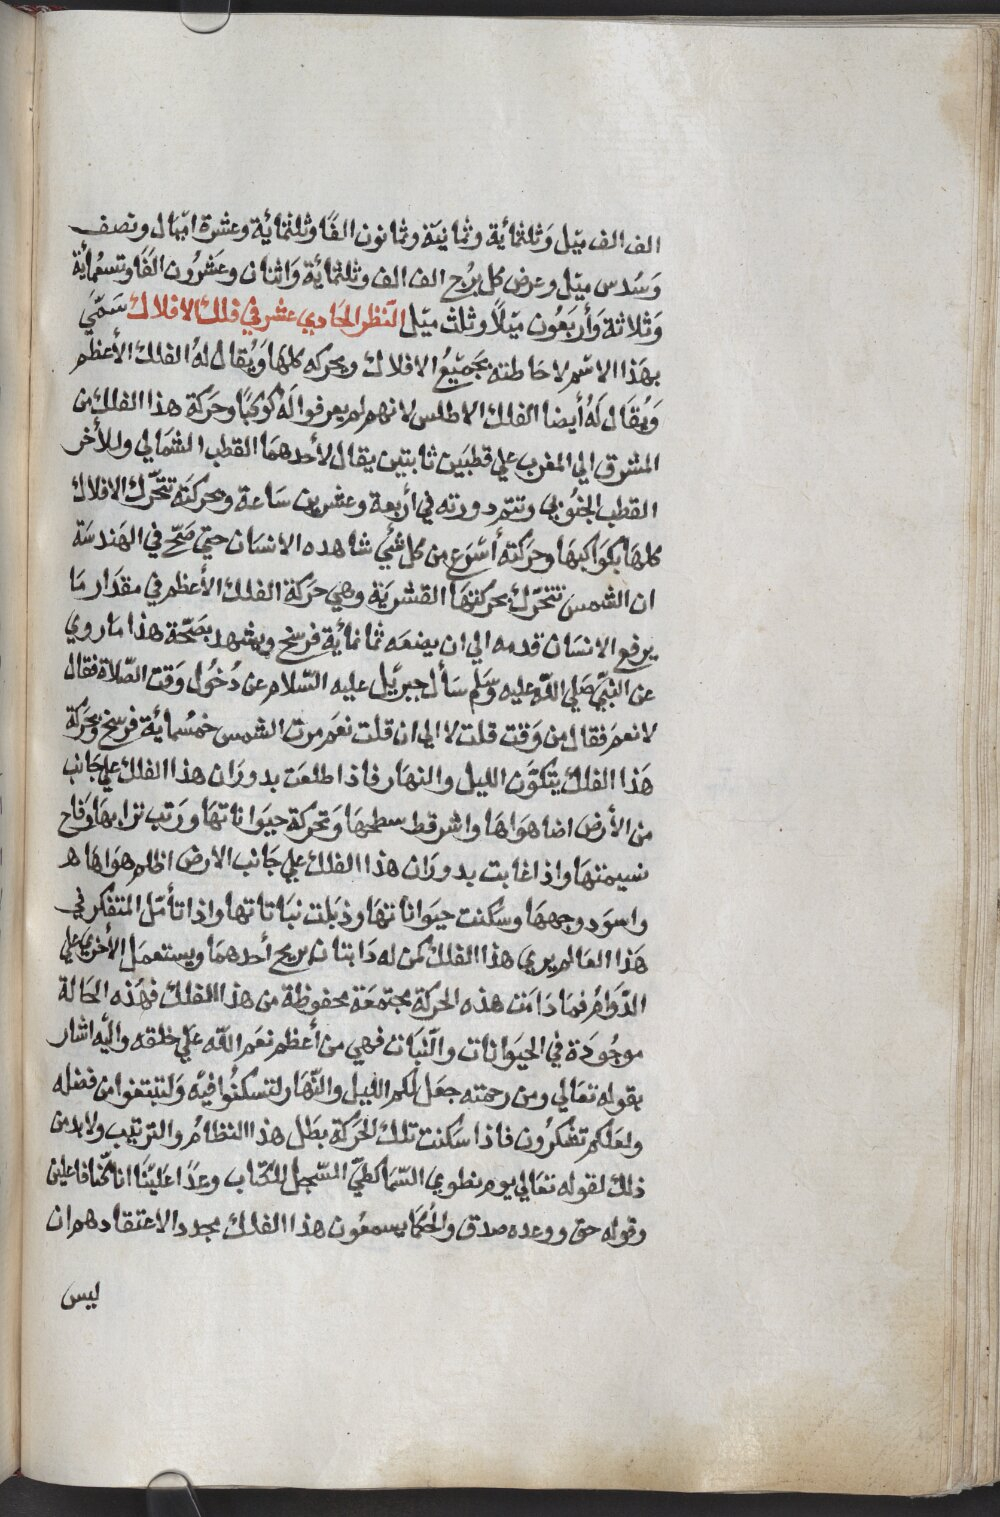 الف الف ميل وثلثمائة وثمانية وثمانون الفا وثلثمائة وعشرة اميال ونصف
وسدس ميل وعرض كل برج الف الف وثلثمائة واثنان وعشرون الفا وتسعمائة
وثلاثة وأربعون ميلا وثلث ميل النظر الحادي عشر في فلك الافلاك سمي
بهذا الاسم لاحاطته بجميع الافلاك وبحركه كلها ويقال له الفلك الأعظم
ويقال له أيضا الفلك الاطلس لانهم لم يعرفوا له كوكبا وحركة هذا الفلك من
المشرق الي المغرب علي قطبين ثابتين يقال لأحدهما القطب الشمالي وللأخر
القطب الجنوبي وتتم دورته في اربعة وعشرين ساعة وبحركته تتحرك الافلاك
كلها بكواكبها وحركته أسرع من كل شئ شاهده الانسان حتي صح في الهندسة
ان الشمس تتحرك بحركتها القشرية وهي حركة الفلك الأعظم في مقدار ما
يرفع الانسان قدمه الي ان يضعه ثمانمائة فرسخ ويشهد بصحة هذا ما روي
عن النبي صلي الله عليه وسلم سأل جبريل عليه السلام عن دخول وقت الصلاة فقال
لا نعم فقال من وقت قلت لا الي ان قلت نعم مرت الشمس خمسمائة فرسخ وبحركة
هذا الفلك يتكون الليل والنهار فاذا طلعت بدوران هذا الفلك علي جانب
من الأرض اضا هواها واشرقط سطحها وتحركة حيواناتها ورتب ترابها وفاح
نسيمتها واذا غابت بدوران هذا الفلك علي جانب الارض اظلم هواها ه
واسود وجهها وسكنت حيواناتها وذبلت نباتاتها واذا تأمل المتفكر في
هذا العالم يري هذا الفلك كمن له دابتان يريح أحدهما ويستعمل الأخري علي
الدوام فما دامت هذه الحركة مجتمعة محفوظة من هذا الفلك فهذه الحالة
موجودة في الحيوانات والنبات فهي من أعظم نعم الله علي خلقه واليه اشار
بقوله تعالي ومن رحمته جعل لكم الليل والنهار لتسكنوا فيه ولتبتغوا من فضله
ولعلكم تفكرون فاذا سكنت تلك الحركة بطل هذا النظام والترتيب ولا بد من
ذلك لقوله تعالي يوم نطوي السما كطي السجل للكتاب وعدا علينا انا كنا فاعلين
وقوله حق ووعده صدق والحكما يسمعون هذا الفلك مجدد الاعتقادهم ان
ليس